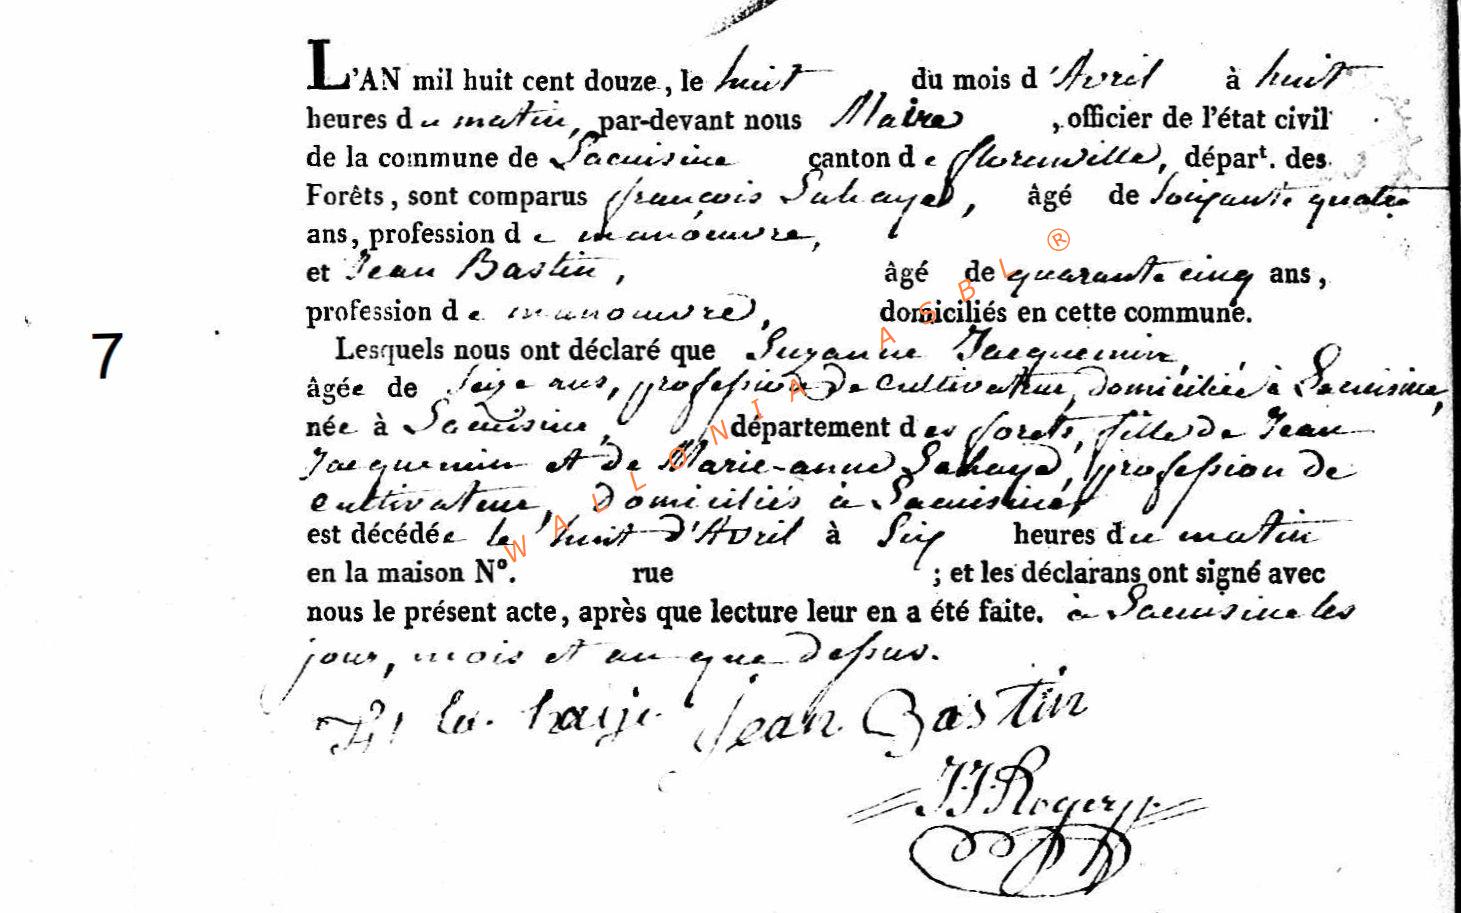 L'AN mil huit cent douze, le huit du mois d'Avril à huit
heures du matin, par-devant nous Maire, officier de l'état civil
de la commune de Lacuisine canton de florenville, départ. des
Forêts, sont comparus françois Lahaye, âgé de soixante quatre
ans, profession de manoeuvre,
et Jean Bastin, âgé de quarante cinq ans,
profession de manouvre, domiciliés en cette commune.
7
Lesquels nous ont déclaré que Suzanne Jacquemin,
âgée de seize ans, profession de cultivateur, domiciliée à Lacuisine,
née à Lacuisine, département des forets, fille de Jean
Jacquemin et de Marie-anne Lahaye, profession de
cultivateur, domiciliés à Lacuisine,
est décédée le huit d'Avril à six heures du matin
en la maison N°. rue ; et les déclarans ont signé avec
nous le présent acte, après que lecture leur en a été faite. à Lacuisine les
jour, mois et an que dessus.
la haije Jean Bastin
J.J. Rogery
WALLONIA ASBL ®